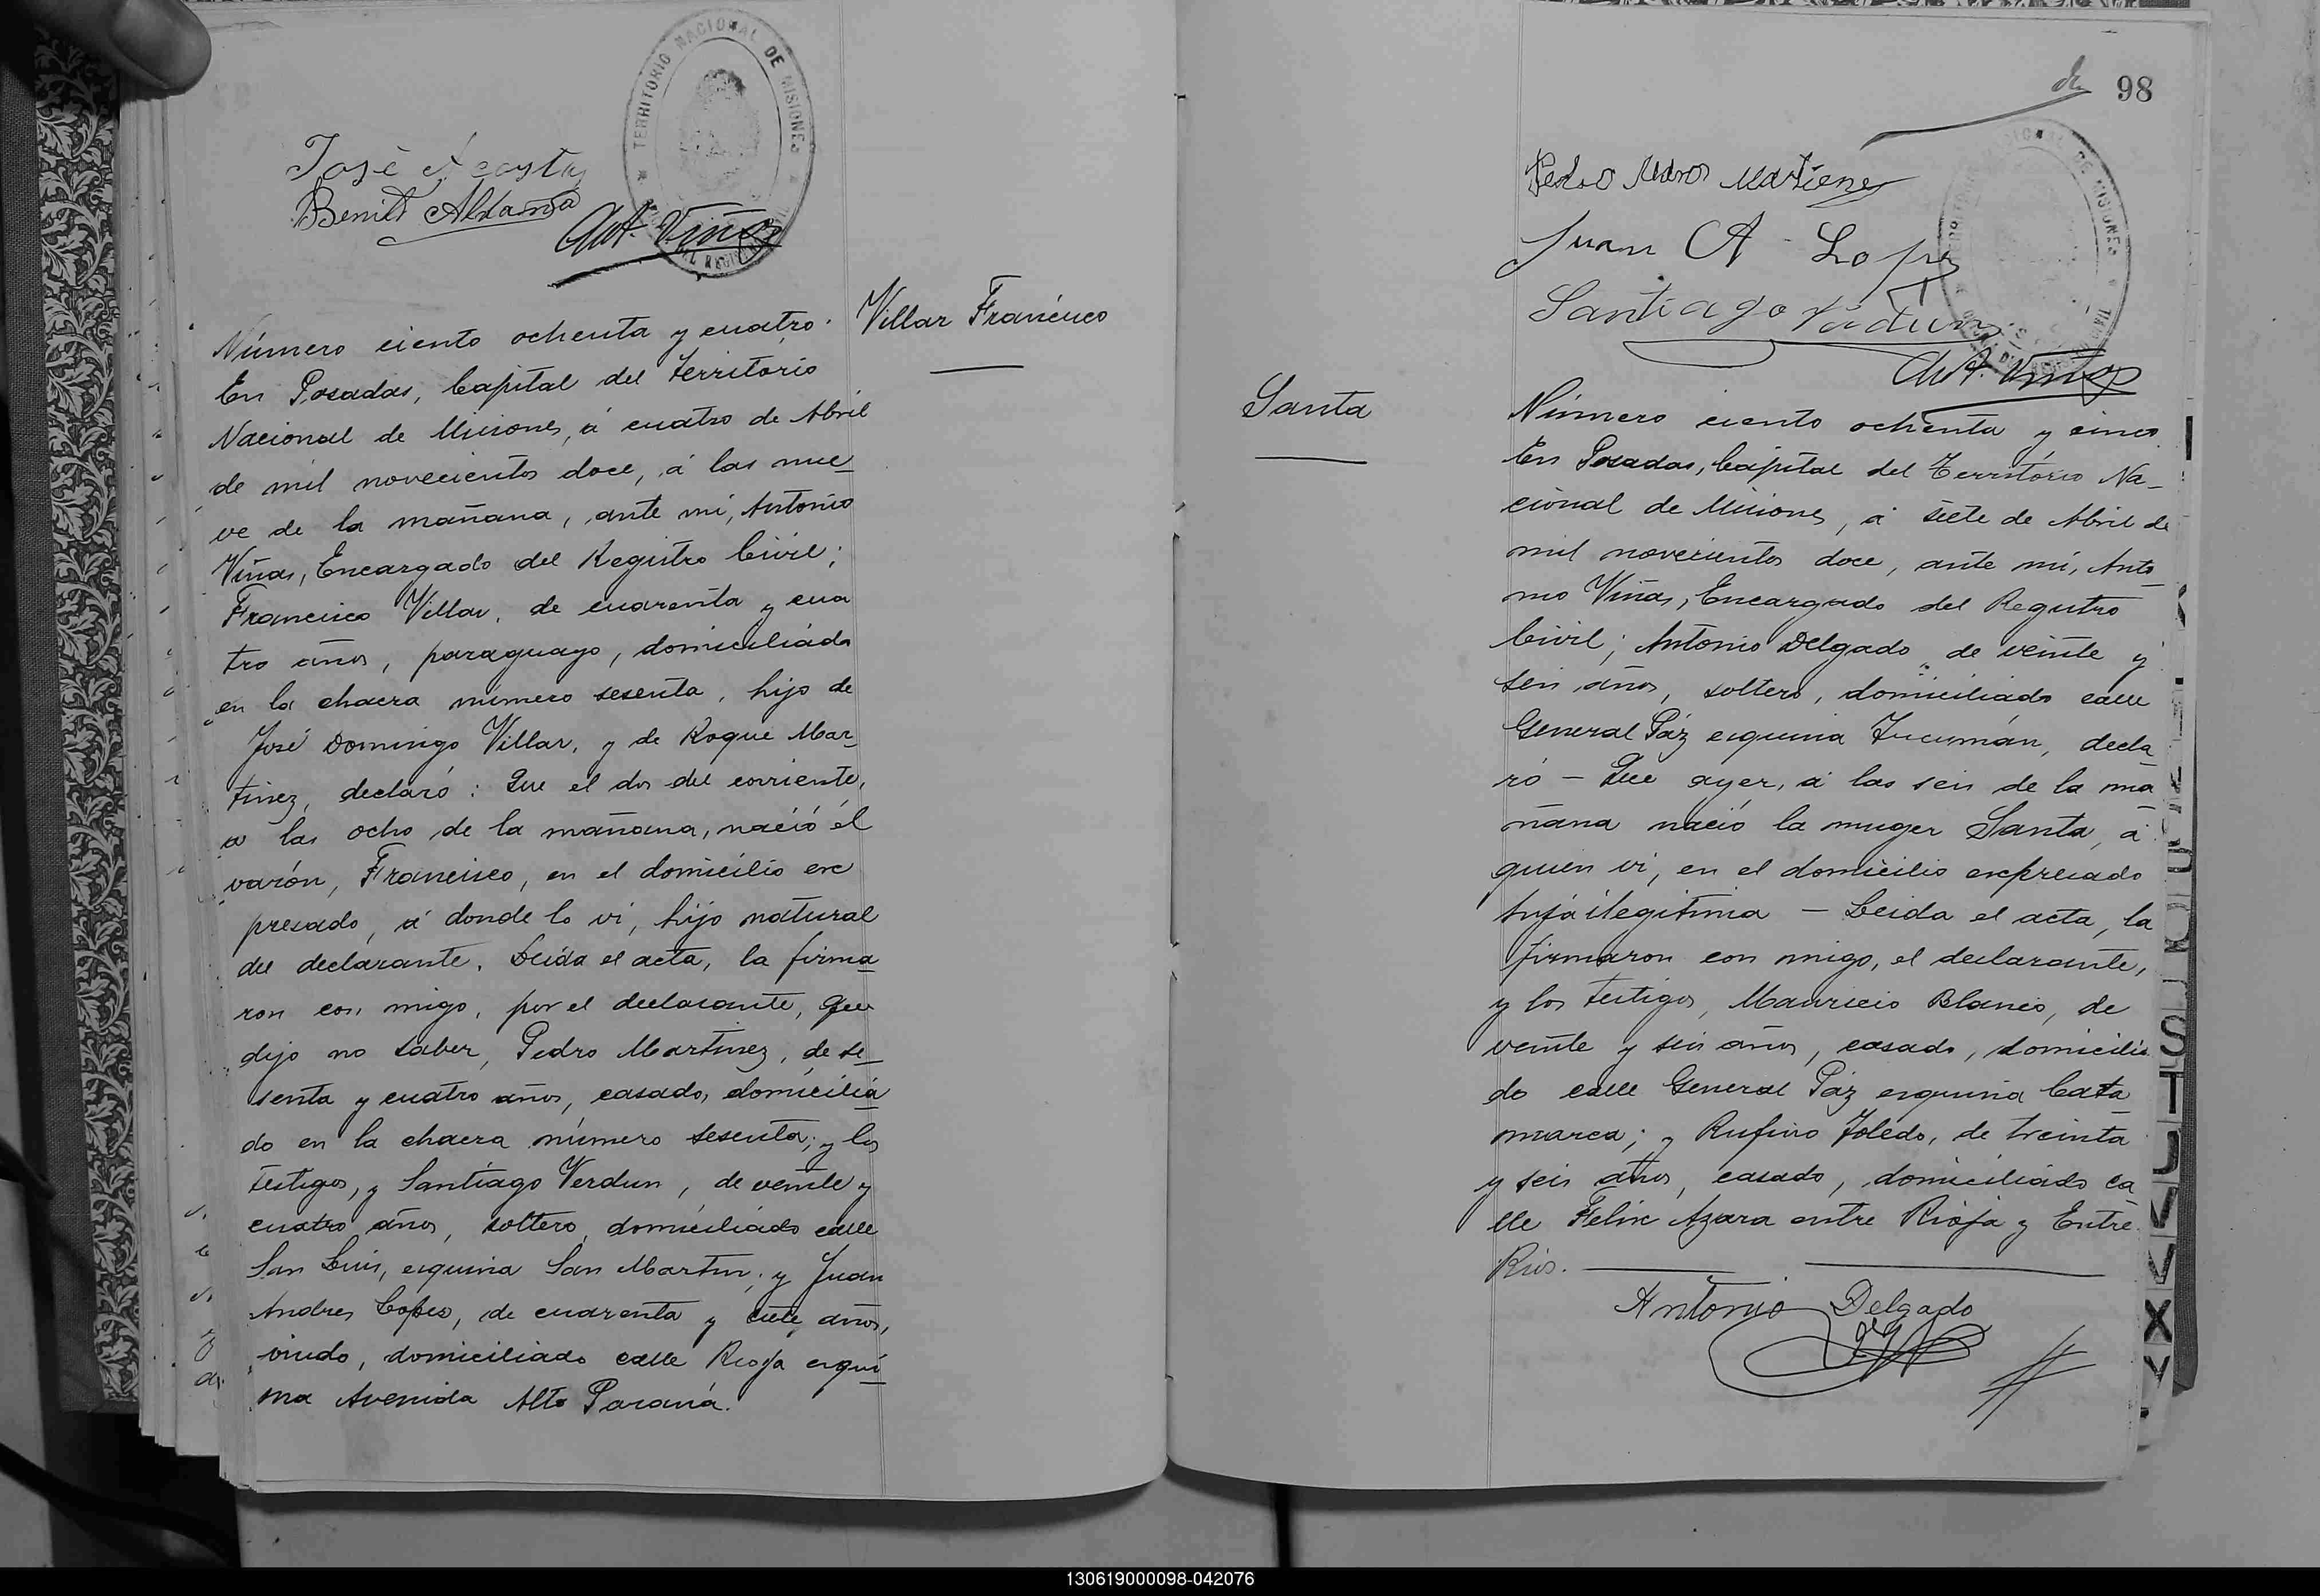 TERRITORIO NACIONAL DE MISIONES
José Acosta
Benito Aldama
Ant. Viñas
Villar Francisco
Número ciento ochenta y cuatro.
En Posadas, Capital del territorio
Nacional de Misiones, á cuatro de Abril
de mil novecientos doce, á las nue_
ve de la mañana, ante mi, Antonio
Viñas, Encargado del Registro Civil;
Francisco Villar, de cuarenta y cua
tro años, paraguayo, domiciliado
en la chacra número sesenta, hijo de
José Domingo Villar, y de Roque Mar_
tinez, declaró: Que el dos del corriente,
a las ocho de la mañana, nació el
varón, Francisco, en el domicilio ex
presado, á donde lo vi, hijo natural
del declarante. Leida el acta, la firma
ron con migo, por el declarante, que
dijo no saber, Pedro Martinez, de se_
senta y cuatro años, casado, domicilia
do en la chacra número sesenta; y los
testigos, y Santiago Verdun, de veinte y
cuatro años, soltero, domiciliado calle
San Luis, esquina San Martin; y Juan
Andres Lopes, de cuarenta y siete años,
viudo, domiciliado calle Rioja esqui
na Avenida Alto Paraná.
98
DE MISIONES
Pedro Martinez
Juan A Lopez
Santiago Verdun
Ant. Viñas
Santa
Número ciento ochenta y cinco
En Posadas, Capital del Territorio Na_
cional de Misiones, á siete de Abril de
mil novecientos doce, ante mi, Anto
nio Viñas, Encargado del Registro
Civil; Antonio Delgado, de veinte y
seis años, soltero, domiciliado calle
General Páz esquina Tucumán, decla
ró - Que ayer, á las seis de la ma
ñana nació la muger Santa, á
quien vi, en el domicilio expresado
hija ilegitima - Leida el acta, la
firmaron con migo, el declarante,
y los testigos, Mauricio Blanco, de
veinte y seis años, casado, domicilia
do calle General Páz esquina Cata
marca; y Rufino Toledo, de treinta
y seis años, casado, domiciliado ca
lle Felix Azara entre Rioja y Entre
Rios.
Antonio Delgado
S
T
U
V
X
Y
130619000098-042076